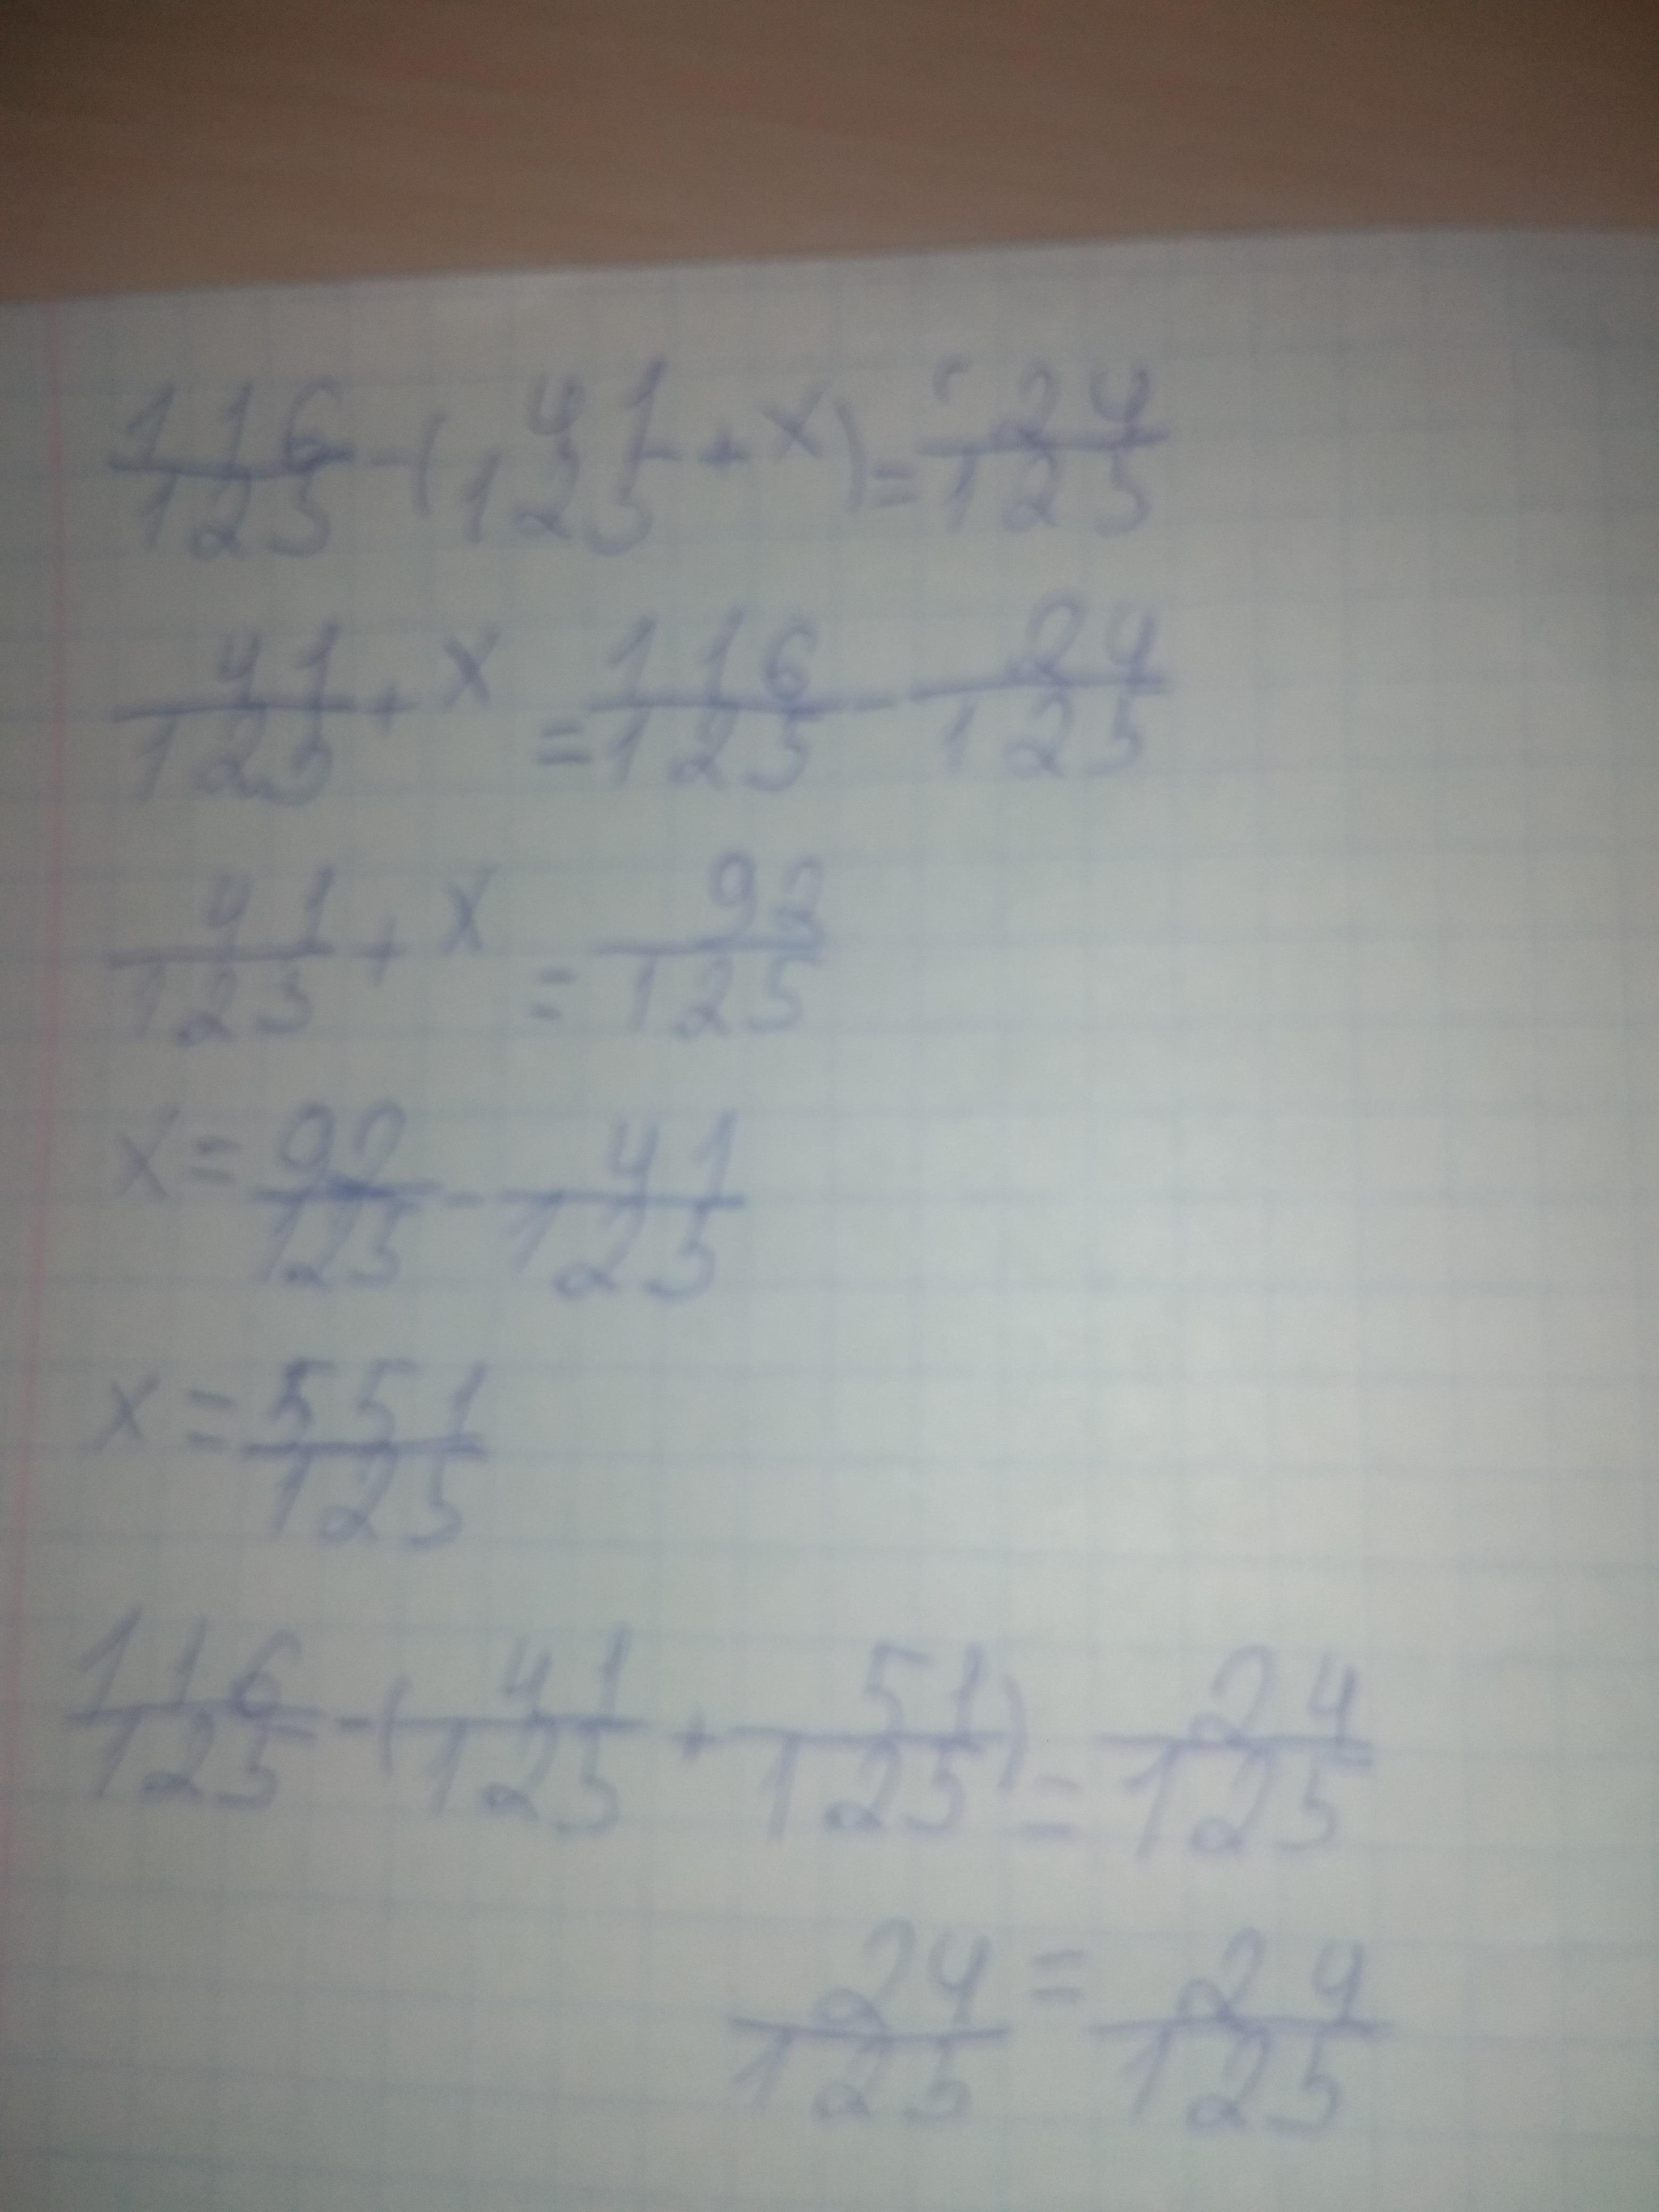 116/125 - (41/125 + x) = 24/125
41/125 + x = 116/125 - 24/125
41/125 + x = 92/125
x = 92/125 - 41/125
x = 551/125
116/125 - (41/125 + 51/125) = 24/125
24/125 = 24/125